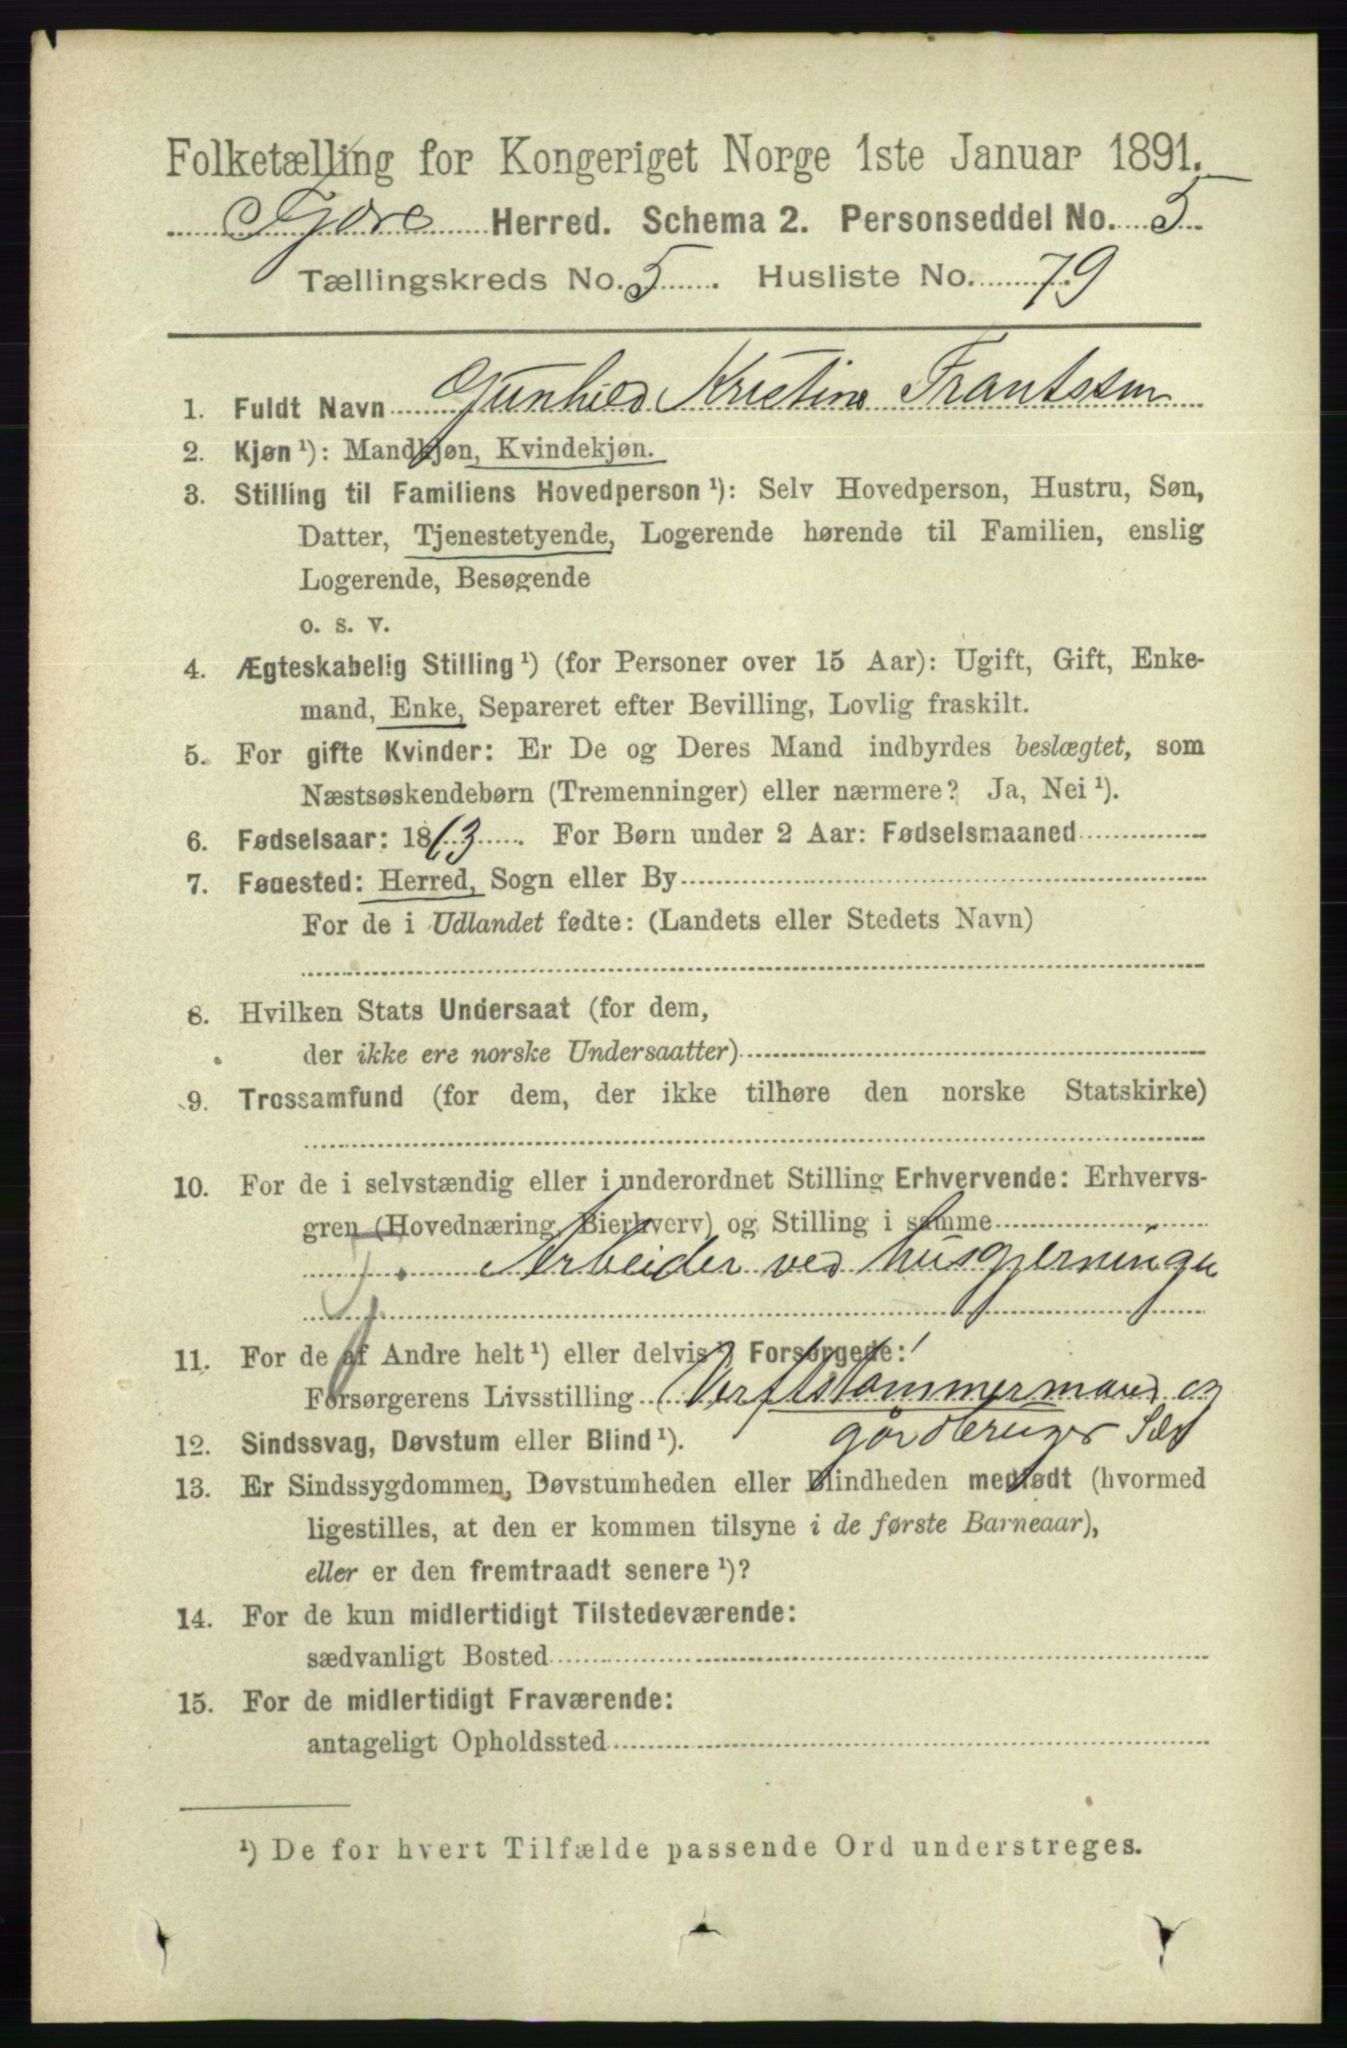 Folketælling for Kongeriget Norge 1ste Januar 1891.
Fjære Herred. Schema 2. Personseddel No. 5
Tællingskreds No. 5. Husliste No. 79
1. Fuldt Navn Gunhild Kristine Frantssen
2. Kjøn ¹): Mandkjøn, Kvindekjøn.
3. Stilling til Familiens Hovedperson ¹): Selv Hovedperson, Hustru, Søn,
Datter, Tjenestetyende, Logerende hørende til Familien, enslig
Logerende, Besøgende
o. s. v.
4. Ægteskabelig Stilling ¹) (for Personer over 15 Aar): Ugift, Gift, Enke-
mand, Enke, Separeret efter Bevilling, Lovlig fraskilt.
5. For gifte Kvinder: Er De og Deres Mand indbyrdes beslægtet, som
Næstsøskendebørn (Tremenninger) eller nærmere? Ja, Nei ¹).
6. Fødselsaar: 1863. For Børn under 2 Aar: Fødselsmaaned
7. Fødested: Herred, Sogn eller By
For de i Udlandet fødte: (Landets eller Stedets Navn)
8. Hvilken Stats Undersaat (for dem,
der ikke ere norske Undersaatter)
9. Trossamfund (for dem, der ikke tilhøre den norske Statskirke)
10. For de i selvstændig eller i underordnet Stilling Erhvervende: Erhvervs-
gren (Hovednæring, Bierhverv) og Stilling i samme
Arbeider ved husgjerningen
11. For de af Andre helt ¹) eller delvis ¹) Forsørgede:
Forsørgerens Livsstilling Verftstømmermand og
gårdbruger
12. Sindssvag, Døvstum eller Blind ¹).
13. Er Sindssygdommen, Døvstumheden eller Blindheden medfødt (hvormed
ligestilles, at den er kommen tilsyne i de første Barneaar),
eller er den fremtraadt senere ¹)?
14. For de kun midlertidigt Tilstedeværende:
sædvanligt Bosted
15. For de midlertidigt Fraværende:
antageligt Opholdssted
¹) De for hvert Tilfælde passende Ord understreges.